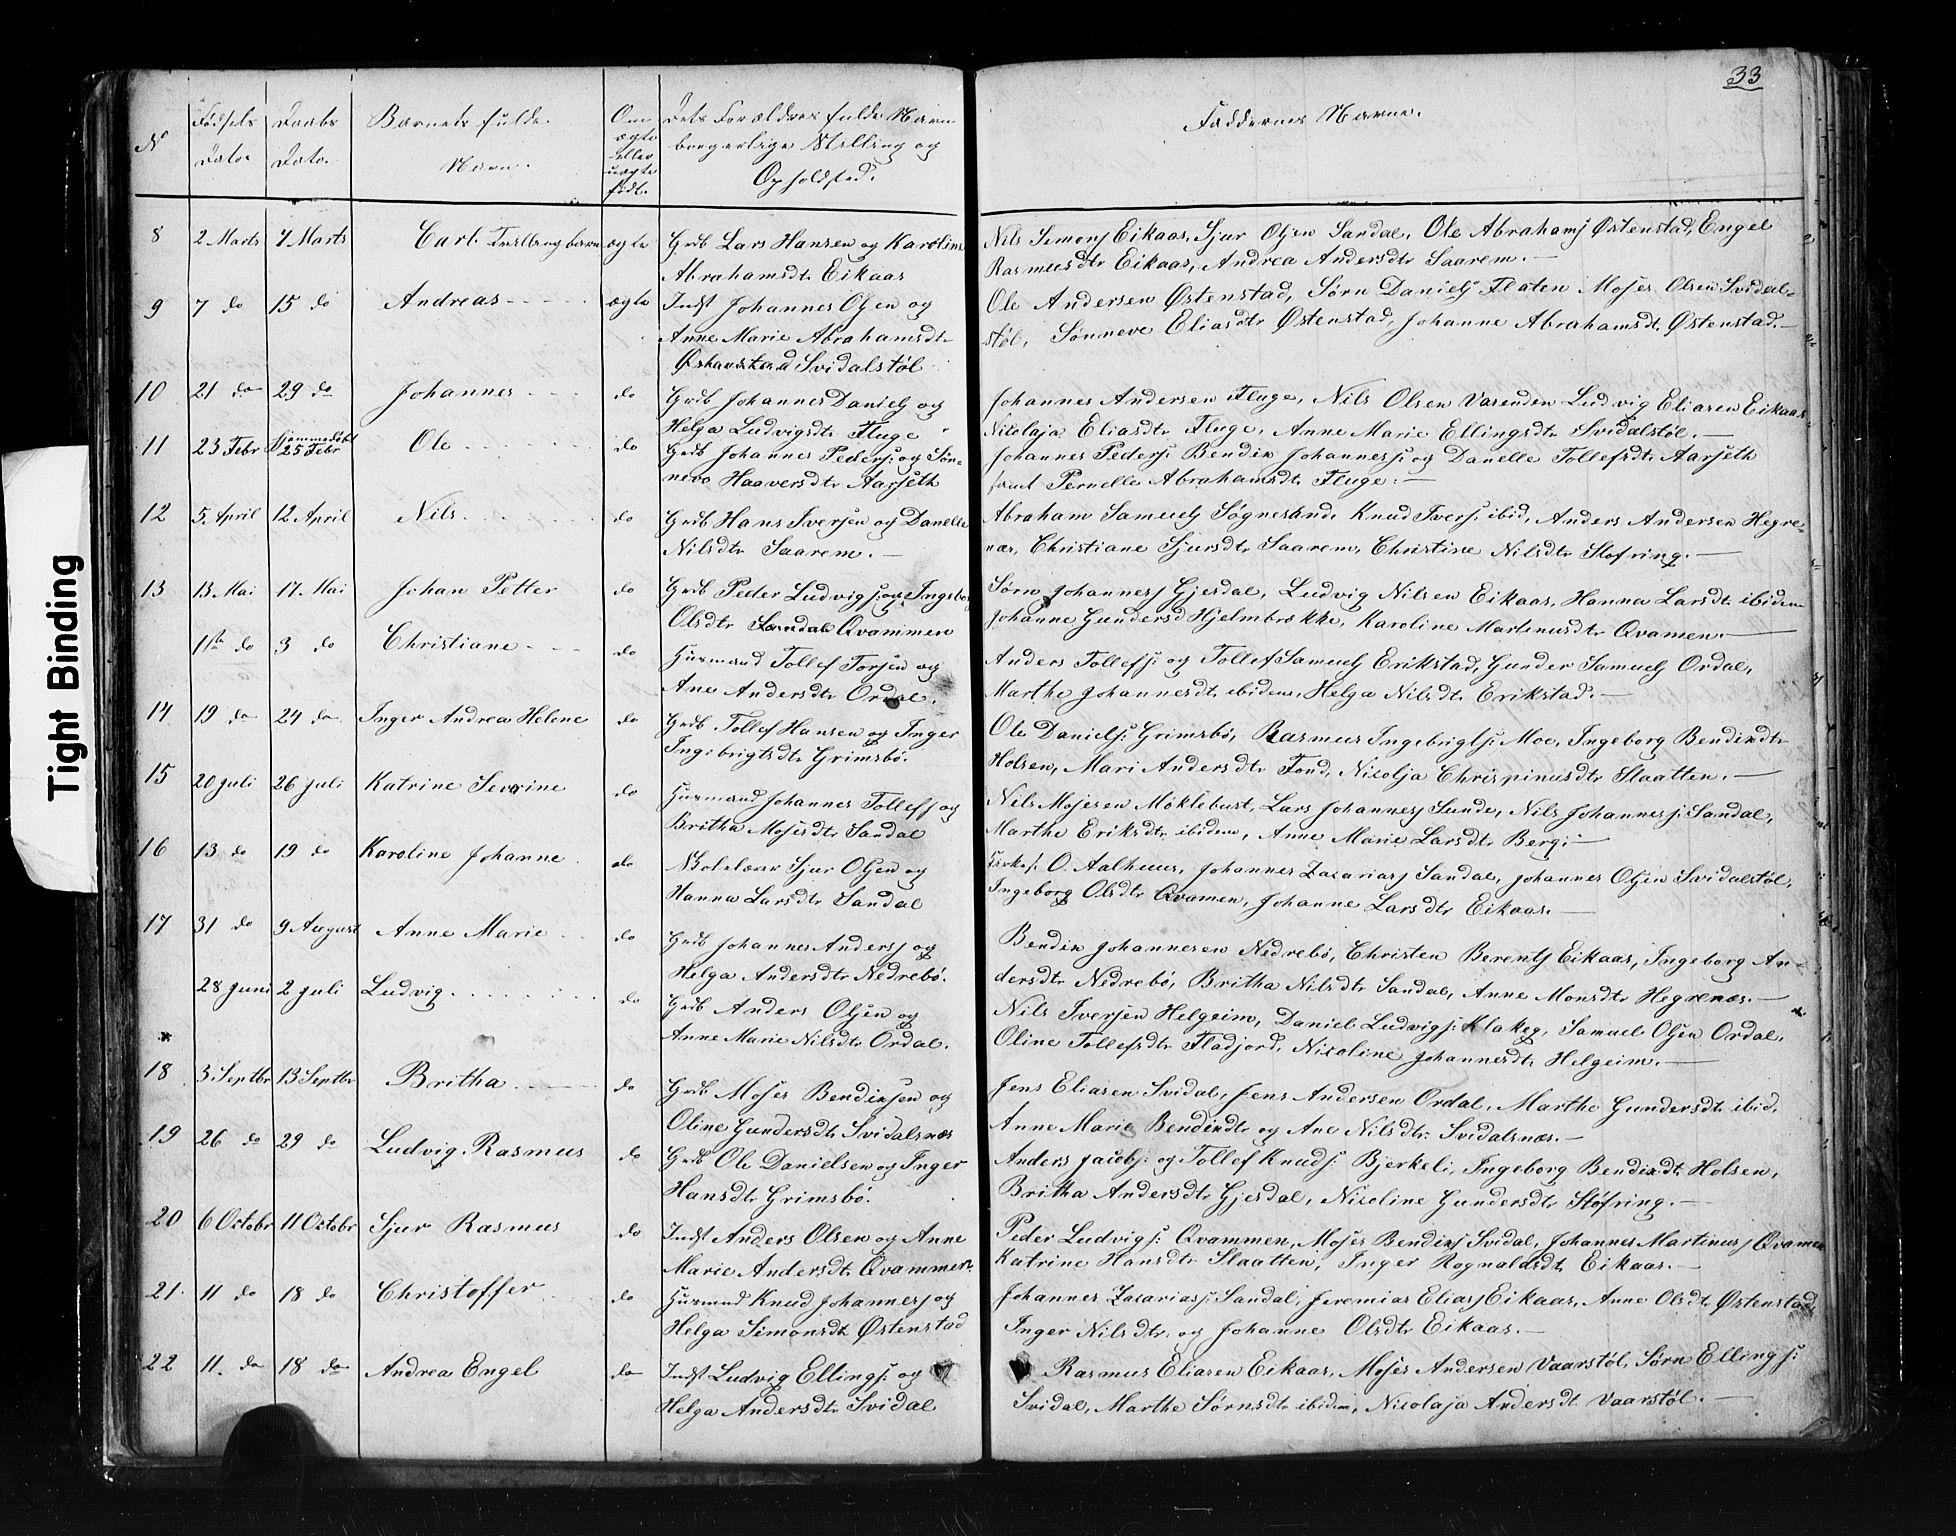 33
Tight Binding
No
Fødsels Dato.
Daabs Dato.
Barnets fulde Navn.
Om ægte eller uægte født.
Dets Forældres fulde Navn borgerlige Stilling og Opholdsted.
Faddernes Navne.
8 2 Marts 7 Marts Carl. Tvillingbarn ægte Grdb Lars Hansen og Karoline
Abrahamsdtr Eikaas
Nils Simonsj Eikaas, Sjur Olsen Sandal, Ole Abrahamsj Østenstad, Engel
Rasmusdtr Eikaas, Andrea Andersdtr Saarem.
9 7 do 15 do Andreas ægte Indst Johannes Olsen og
Anne Marie Abrahamsdtr
Svidalstøl
Ole Andersen Østenstad, Sørn Danielsj Flaten Moses Olsen Svidal-
støl, Sønneve Eliasdtr Østenstad, Johanne Abrahamsdt. Østenstad.
10 21 do 29 do Johannes do Grdb Johannes Danielsj og
Helga Ludvigsdtr Fluge
Johannes Andersen Fluge, Nils Olsen Varenden Ludvig Eliasen Eikaas
Nicolaja Eliasdtr Fluge, Anne Marie Ellingsdtr Svidalstøl.
11 23 Febr Hjemmedøbt 25 Febr Ole do Grdb Johannes Peders: og Søn-
neva Haaversdtr Aarseth
Johannes Peders: Bendix Johannes: og Danelle Tollefsdtr Aarseth
samt Pernelle Abrahamsdtr Fluge.
12 5. April 12 April Nils do Grdb Hans Iversen og Danelle
Nilsdtr Saarem.
Abraham Samuelsj Søgnesand, Knud Ivers: ibid, Anders Andersen Hegre-
næs, Christiane Sjursdtr Saarem, Christine Nilsdtr Støfring.
13 13 Mai 17 Mai Johan Petter do Grdb Peder Ludvigs: og Ingeborg
Olsdtr Sandal Qvammen
Sørn Johannesj Gjesdal, Ludvig Nilsen Eikaas, Hanna Larsdtr ibidem
Johanne Gundersd Hjelmbrække, Karoline Martinusdtr Qvamen.
11te do 3 do Christiane do Husmand Tollef Torsen og
Ane Andersdtr Ordal.
Anders Tollefs: og Tollef Samuelsj Erikstad, Gunder Samuelsj Ordal,
Marthe Johannesdt. ibidem, Helga Nilsdtr Erikstad.
14 19 do 24 do Inger Andrea Helene do Grdb Tollef Hansen og Inger
Ingebrigtsdtr Grimsbø.
Ole Daniels: Grimsbø, Rasmus Ingebrigts: Moe, Ingeborg Bendixdtr
Holsen, Mari Andersdtr Fond, Nicolja Chrispinusdtr Slaatten.
15 20 Juli 26 Juli Katrine Severine do Husmand Johannes Tollefsj og
Britha Mosesdtr Sandal
Nils Mosesen Møklebust, Lars Johannesj Sunde, Nils Johannesj. Sandal,
Marthe Eriksdtr ibidem, Anne Marie Larsdtr Berg.
16 13 do 19 do Karoline Johanne do Skolelærer Sjur Olsen og
Hanna Larsdtr Sandal
Kirkes. O. Aalhuus, Johannes Zakariasj Sandal, Johannes Olsen Svidalstøl,
Ingeborg Olsdtr Qvamen, Johanne Larsdtr Eikaas.
17 31 do 9 August Anne Marie do Grdb Johannes Andersj og
Helga Andersdtr Nedrebø.
Bendix Johannesen Nedrebø, Christen Berentsj Eikaas, Ingeborg An-
dersdtr Nedrebø, Britha Nilsdtr Sandal, Anne Monsdtr Hegrenæs.
28 Juni 2 Juli Ludvig do Grdb Anders Olsen og
Anne Marie Nilsdtr Ordal.
Nils Iversen Helgeim, Daniel Ludvigs: Klakeg, Samuel Olsen Ordal,
Oline Tollefsdtr Fladjord, Nicoline Johannesdt. Helgeim.
18 3. Septbr 13 Septbr Britha do Grdb Moses Bendixsen og
Oline Gundersdt Svidalsnæs
Jens Eliasen Svidal, Jens Andersen Ordal, Marthe Gundersdt. ibid,
Anne Marie Bendixdtr og Ane Nilsdtr Svidalsnæs.
19 26 do 29 do Ludvig Rasmus do Grdb Ole Danielsen og Inger
Hansdtr Grimsbø.
Anders Jacobs: og Tollef Knuds: Bjerkeli, Ingeborg Bendixdt. Holsen,
Britha Andersdtr Gjesdal, Nicoline Gundersdtr Støfring.
20 6 Octobr 11 Octobr Sjur Rasmus do Indst Anders Olsen og Anne
Marie Andersdt. Qvammen.
Peder Ludvigs: Qvammen, Moses Bendixsj Svidal, Johannes Martinusj Qvamen
Katrine Hansdtr Slaatten, Inger Rognaldsdtr Eikaas.
21. 11 do 18 do Christoffer do Husmnd Knud Johannesj og
Helga Simonsdt Østenstad
Johannes Zakarias: Sandal, Jeremias Eliasj Eikaas, Anne Olsdt. Østenstad
Inger Nilsdtr og Johanne Olsdtr Eikaas.
22 11. do 18 do Andrea Engel do Indst Ludvig Ellings: og
Helga Andersdtr Svidal
Rasmus Eliasen Eikaas, Moses Andersen Vaarstøl, Sørn Ellings:
Svidal, Marthe Sørnsdtr ibidem, Nicolaja Andersdt. Vaarstøl.